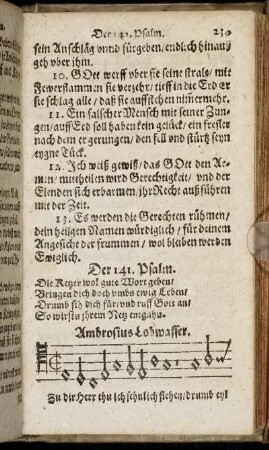 Der 141. Psalm.
sein Anschläg vnnd fürgeben/ endlich hinauß
geh vber jhm.
10. GOtt werff vber sie seine strals/ mit
Fewerflammen sie verzehr/ tieff in die Erd er
sie schlag alle/ daß sie auffstehen nimermehr.
11. Ein falscher Mensch mit seiner Zun-
gen/ auff Erd soll haben kein gelück/ ein freffer
nach dem ergerungen/ den fell vnd stürtz seyn
eygne Tück.
12. Jch weiß gewiß/ das GOtt den Ar-
men/ mittheilen wird Gerechtigkeit/ vnd der
Elenden sich erbarmen/ jhr Recht außführen
mit der Zeit.
13. Es werden die Gerechten rühmen/
dein heiligen Namen würdiglich/ für deinem
Angesicht der frummen/ wol bleiben werden
Ewiglich.
Der 141. Psalm.
Die Ketzer wol gute Wort geben/
Bringen dich doch vmbs ewig Leben/
Drumb sih dich für/ vnd ruff Gott an/
So wirstu jhrem Netz entgahn.
Ambrosius Lobwasser.
Zu dir Herr thu ich sehnlich flehen/ drumb eyl